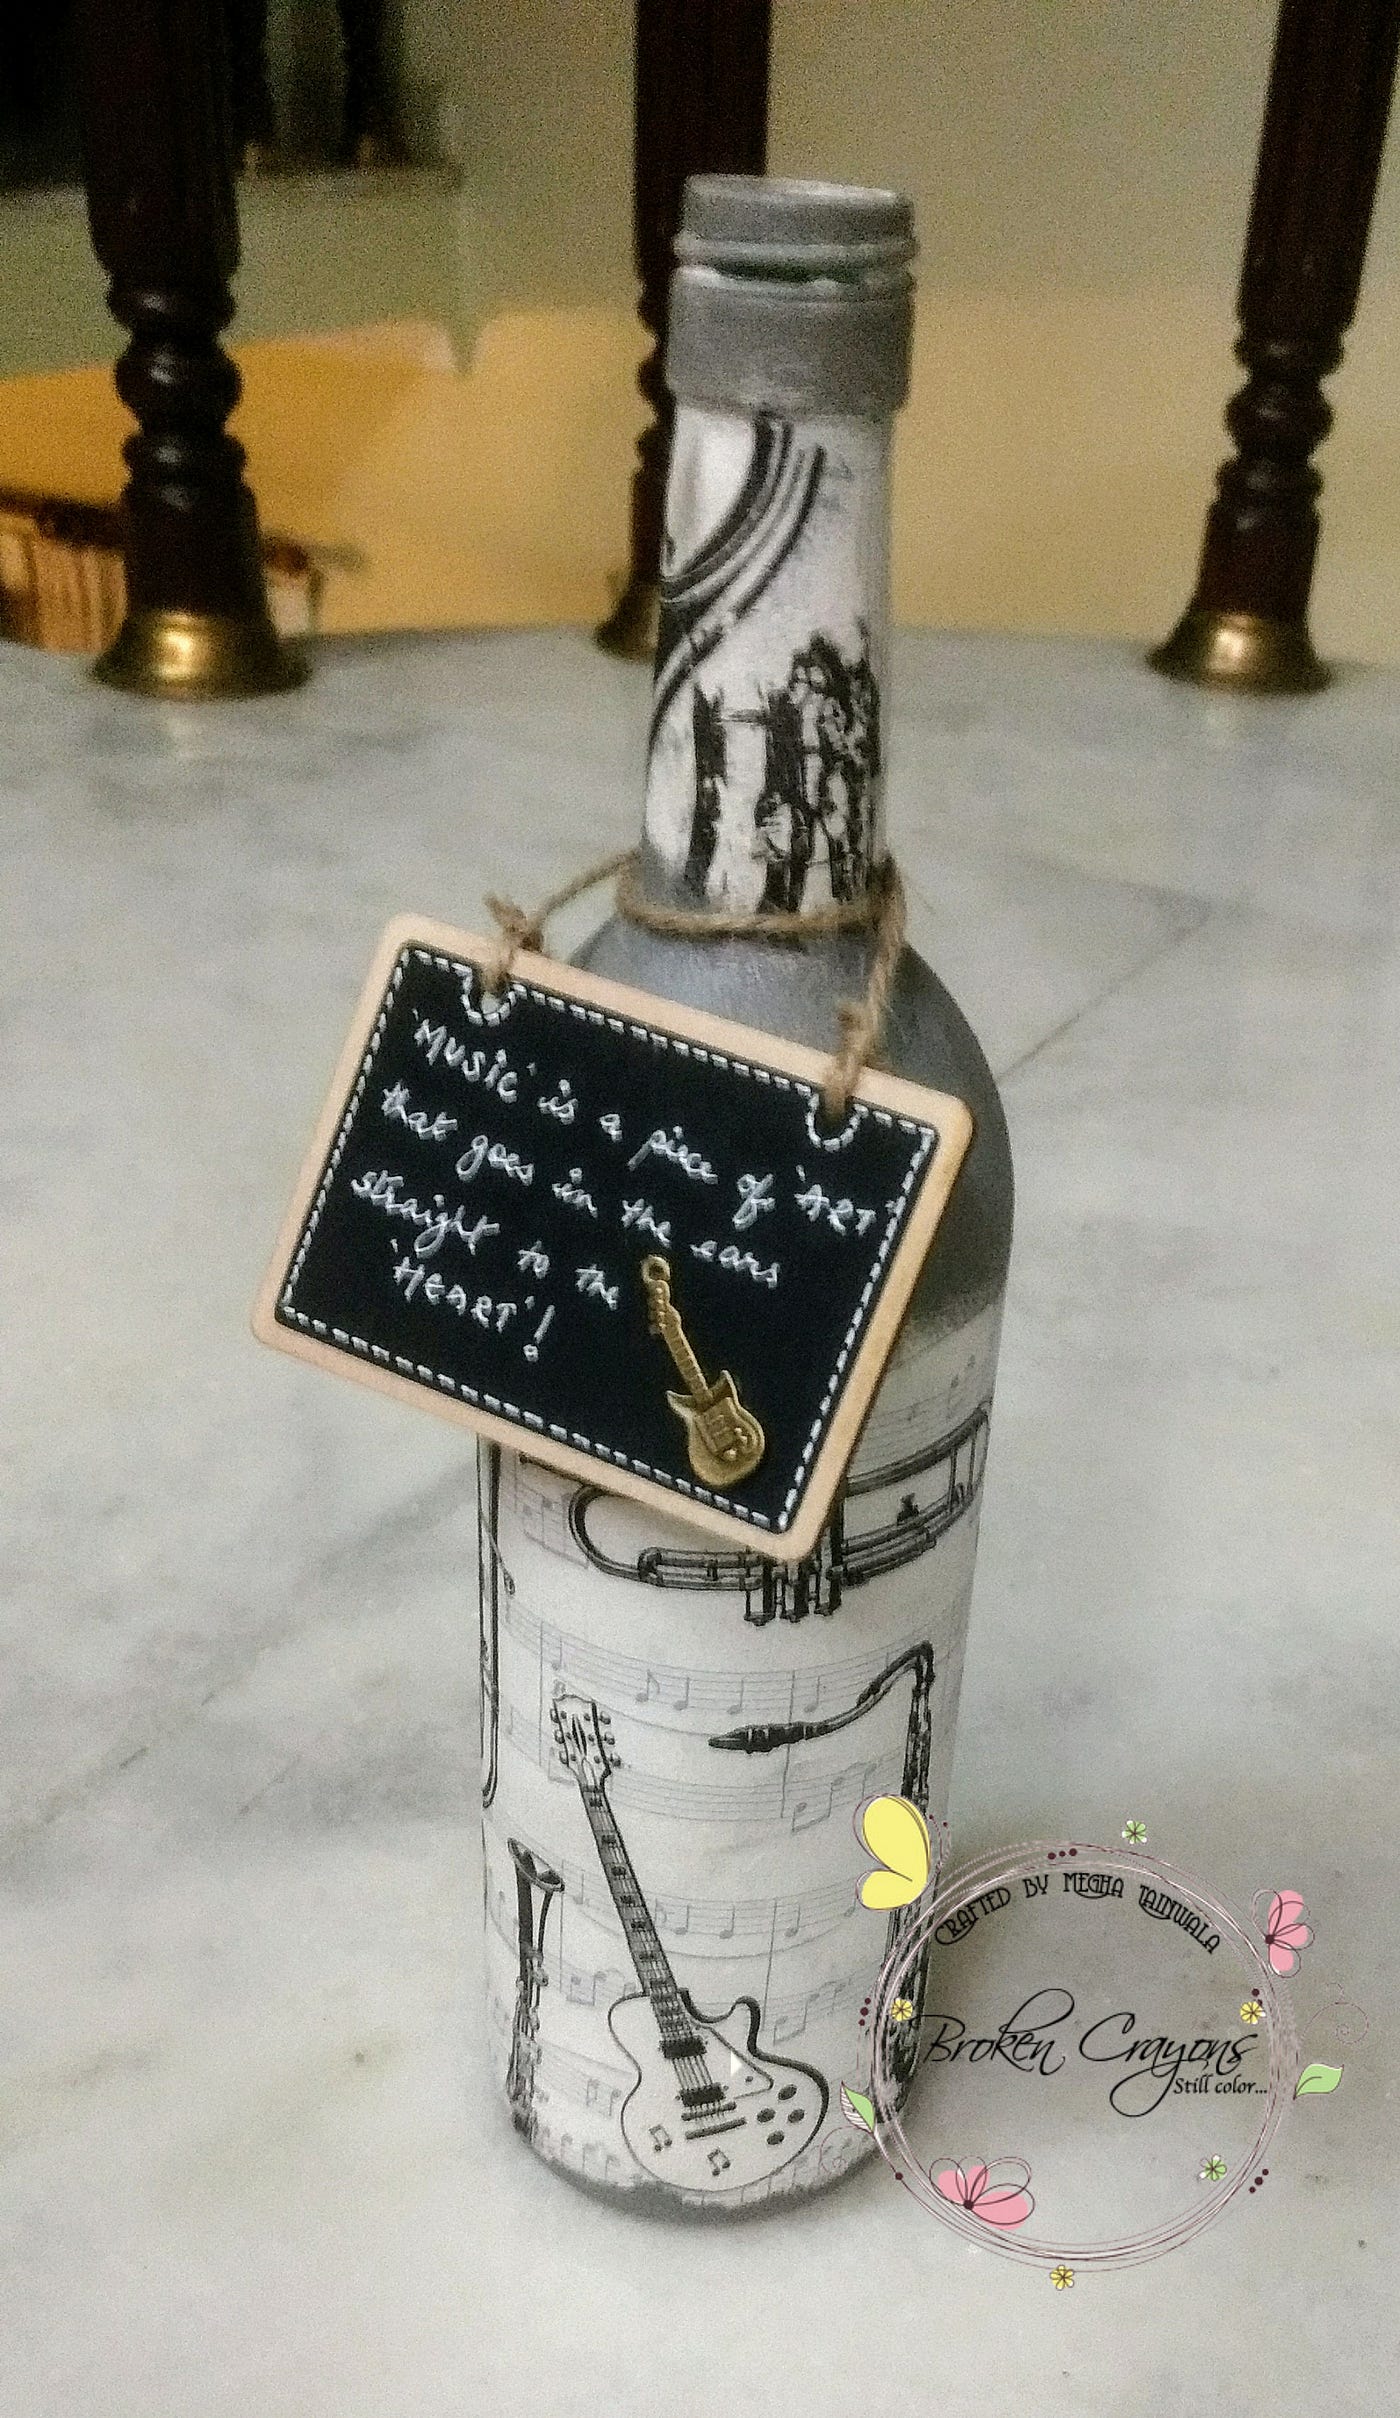 'MUSIC' is a piece of 'ART'
that goes in the ears
straight to the
'HEART'!
CRAFTED BY MEGHA TAINWALA
Broken Crayons
Still color...